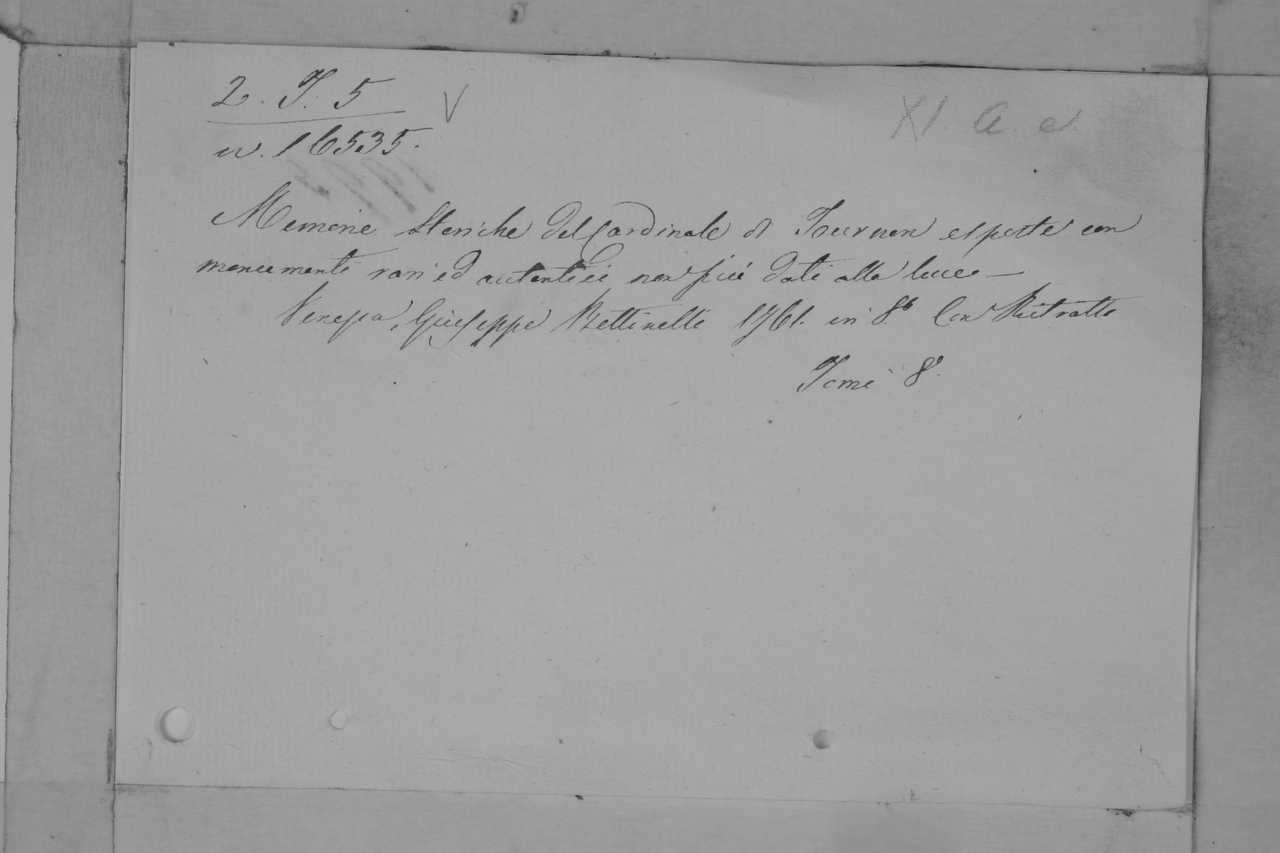 2. T. 5 V
n. 16535.
XI. A. e.
Memorie Storiche del Cardinale di Tournon esposte con
monumenti rari ed autentici non più dati alla luce —
Venezia, Giuseppe Bettinelli 1761. in 8º Con Ritratto
Tomi 8.